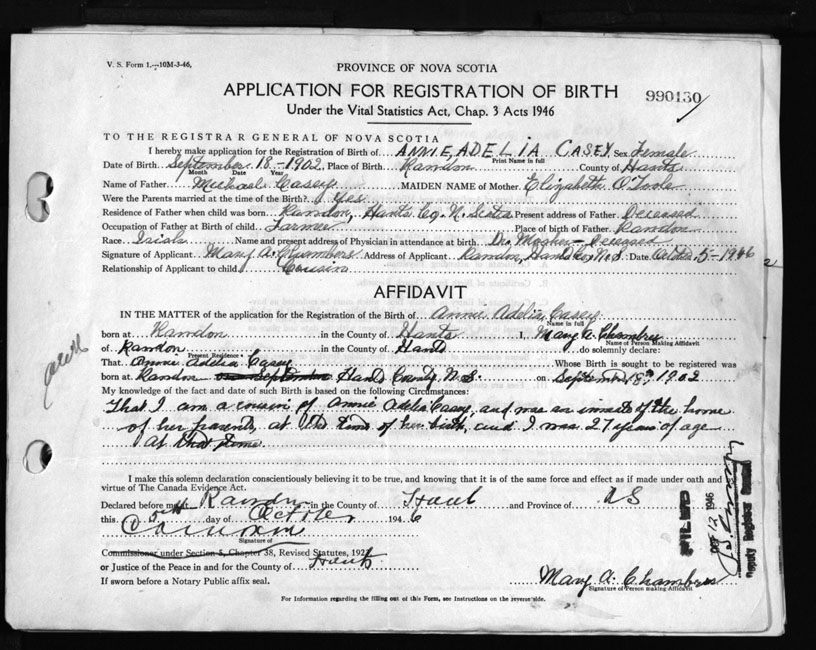 V. S. Form 1.—10M-3-46,
PROVINCE OF NOVA SCOTIA
APPLICATION FOR REGISTRATION OF BIRTH
990130
Under the Vital Statistics Act, Chap. 3 Acts 1946
TO THE REGISTRAR GENERAL OF NOVA SCOTIA
I hereby make application for the Registration of Birth of ANNIE ADELIA CASEY Sex Female
Print Name in full
Date of Birth September 18-1902 Place of Birth Rawdon County of Hants
Month Date Year
Name of Father Michael Casey MAIDEN NAME of Mother Elizabeth O'Toole
Were the Parents married at time of the Birth? Yes
Residence of Father when child was born Rawdon, Hants Co. N. Scotia Present address of Father Deceased
Occupation of Father at Birth of child Farmer Place of birth of Father Rawdon
Race Irish Name and present address of Physician in attendance at birth Dr. Mosher - Deceased
Signature of Applicant Mary A. Chambers Address of Applicant Rawdon, Hants Co. N.S. Date October 5-1946
Relationship of Applicant to child Cousin
AFFIDAVIT
IN THE MATTER of the application for the Registration of the Birth of Annie Adelia Casey
Name in full
born at Rawdon in the County of Hants I, Mary A. Chambers
Name of Person Making Affidavit
of Rawdon in the County of Hants do solemnly declare:
Present Residence
That Annie Adelia Casey Whose Birth is sought to be registered was
born at Rawdon on September Hants County, N.S. on September 18th 1902
My knowledge of the fact and date of such Birth is based on the following Circumstances:
That I am a cousin of Annie Adelia Casey, and was an inmate of the home
of her parents, at the time of her birth, and I was 27 years of age
at that time
I make this solemn declaration conscientiously believing it to be true, and knowing that it is of the same force and effect as if made under oath and by
virtue of The Canada Evidence Act.
Declared before me at Rawdon in the County of Hants and Province of NS
this 5th day of October 1946
Signature of
Commissioner under Section 5, Chapter 38, Revised Statutes, 192
or Justice of the Peace in and for the County of Hants
If sworn before a Notary Public affix seal.
Mary A. Chambers
Signature of Person making Affidavit
FILED
OCT 12 1946
Deputy Registrar General
For Information regarding the filling out of this Form, see Instructions on the reverse side.